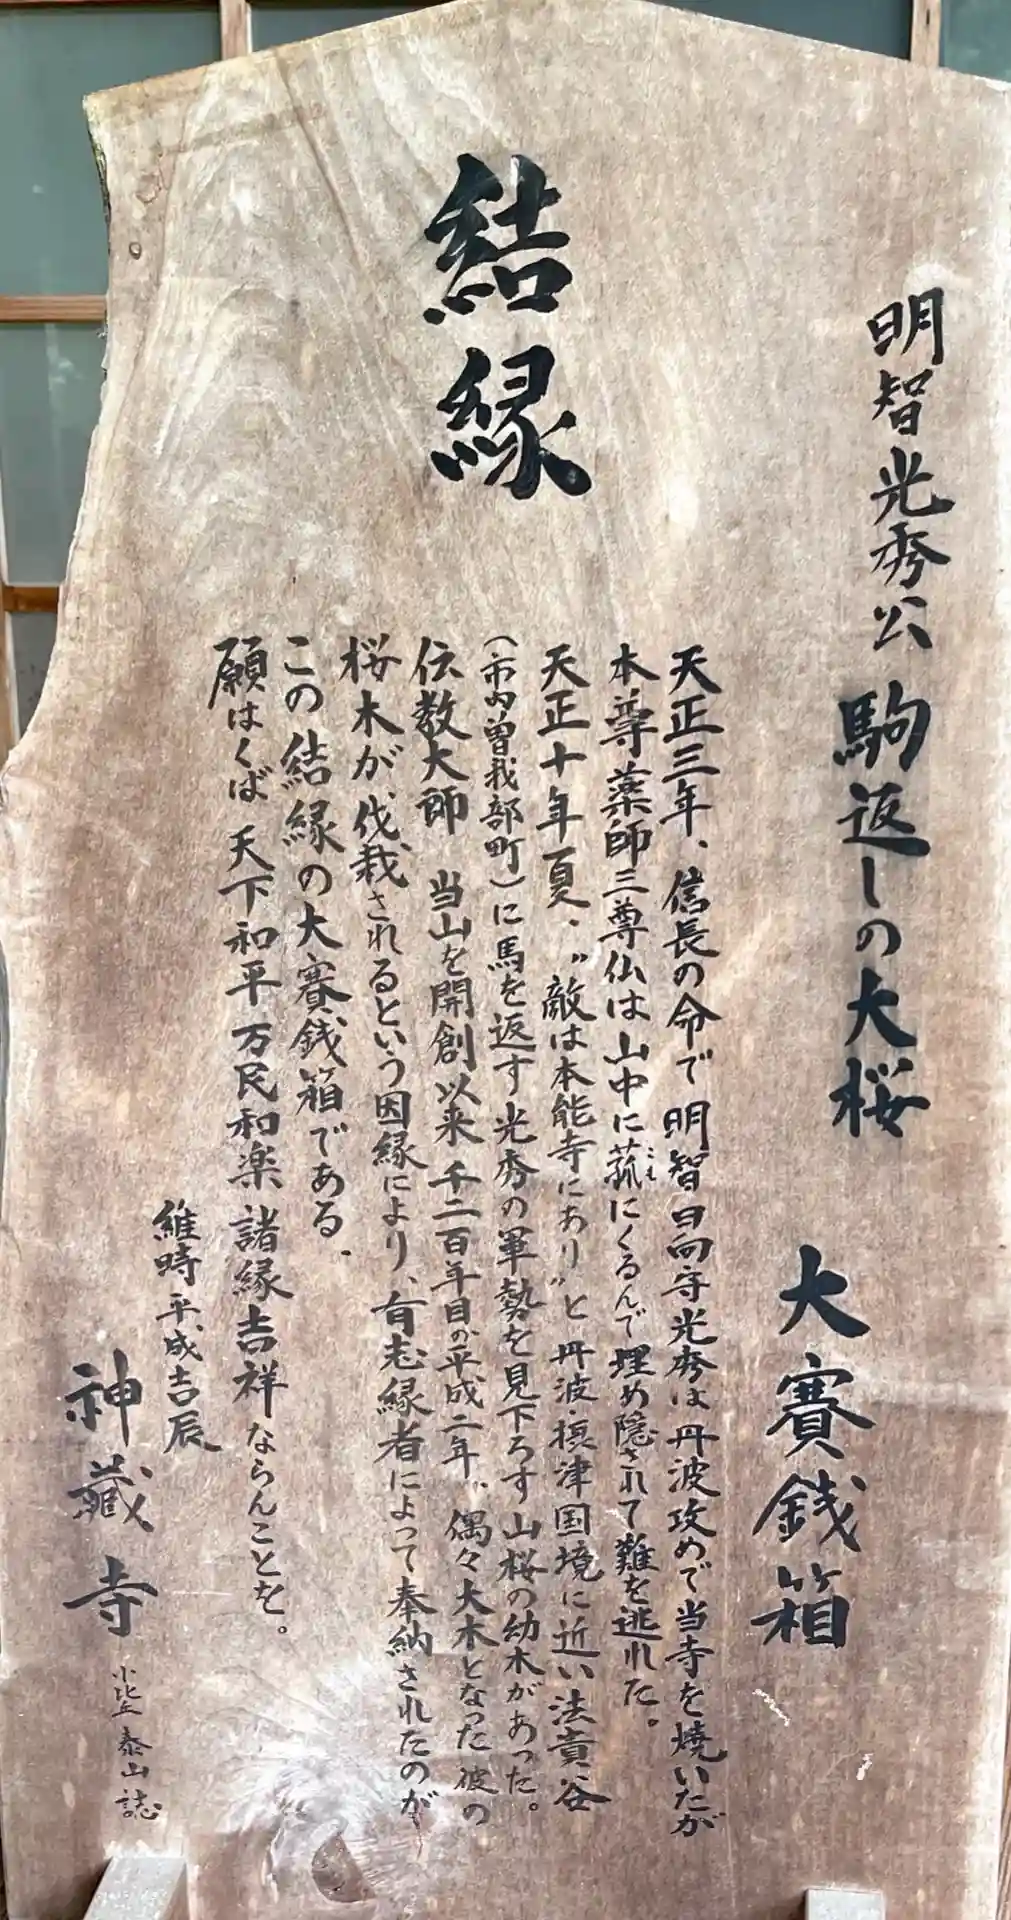 明智光秀公 駒返しの大桜 大賽銭箱
結縁
天正三年、信長の命で明智日向守光秀は丹波攻めで当寺を焼いたが
本尊薬師三尊仏は山中に菰にくるんで埋め隠されて難を逃れた。
こも
天正十年夏、〝敵は本能寺にあり〟と丹波・摂津国境に近い法貴谷
(市内曽我部町)に馬を返す光秀の軍勢を見下ろす山桜の幼木があった。
伝教大師 当山を開創以来 千二百年目の平成二年、偶々大木となった彼の
桜木が、伐栽されるという因縁により、有志縁者によって奉納されたのが
この結縁の大賽銭箱である、
願はくば 天下和平 万民和楽 諸縁吉祥ならんことを。
維時 平成吉辰
神蔵寺 小比丘 泰山誌